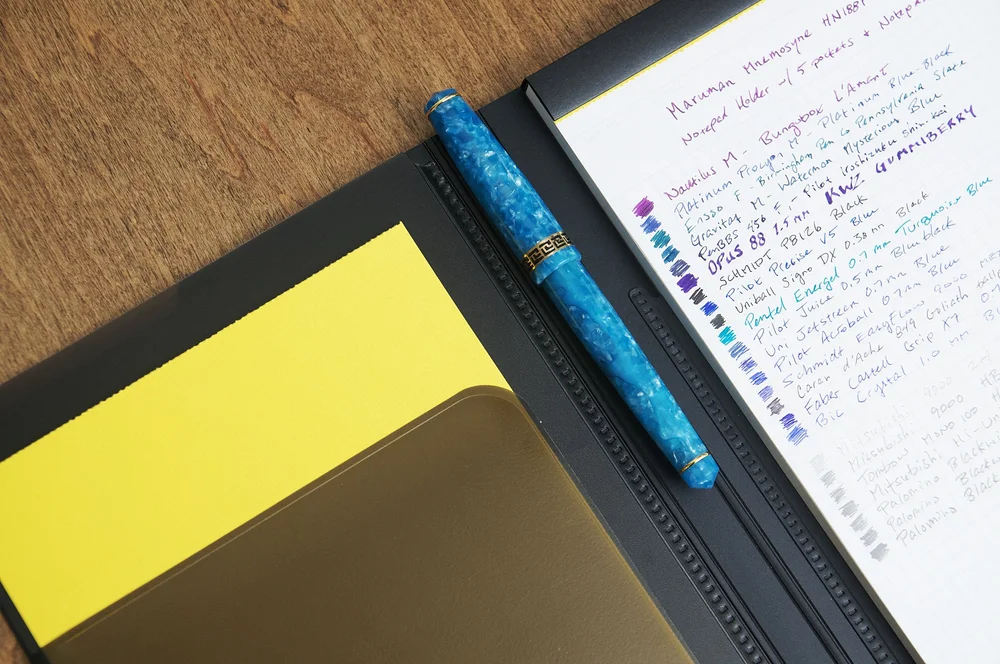 Maruman Mnemosyne HN188
Notepad Holder w/ 5 pockets + Notepad
Nautilus M - Bungubox L'Amant
Platinum Procyon M - Platinum Blue-Black
Ensso F - Birmingham Pen Co Pennsylvania Slate
Gravitas M - Waterman Mysterious Blue
PenBBS 456 F - Pilot Iroshizuku Shin-kai
OPUS 88 1.5 mm KWZ GUMMIBERRY
SCHMIDT P8126 Black
Pilot Precise V5 Blue
Uniball Signo DX 0.38mm Black
Pentel Energel 0.7mm Turquoise Blue
Pilot Juice 0.5mm Blueblack
Uni Jetstream 0.7mm Blue
Pilot Acroball 0.7mm Blue
Schmidt EasyFlow 9000
Caran d'Ache 849 Goliath
Faber Castell Grip X7
Bic Crystal 1.0 mm
Mitsubishi 9000
Mitsubishi 9000
Tombow Mono 100
Mitsubishi Hi-Uni
Palomino
Palomino